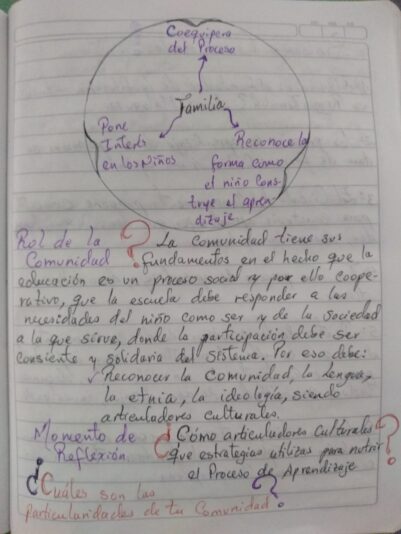 Coequipera
del Proceso
Familia
Pone
Interés
en los Niños
Reconoce la
forma como
el niño Cons-
truye el apren
dizaje
Rol de la
Comunidad ?
La Comunidad tiene sus
fundamentos en el hecho que la
educación es un proceso social y por ello coope-
rativo, que la escuela debe responder a las
necesidades del niño como ser y de la sociedad
a la que sirve, donde la participación debe ser
consiente y solidaria del sistema. Por eso debe:
✓ Reconocer la Comunidad, la lengua,
la etnia, la ideología, siendo
articuladores culturales.
Momento de
Reflexión.
¿Cómo articuladores Culturales
que estrategias utilizas para nutrir
el Proceso de Aprendizaje ?
¿Cuáles son las
particularidades de tu Comunidad ?